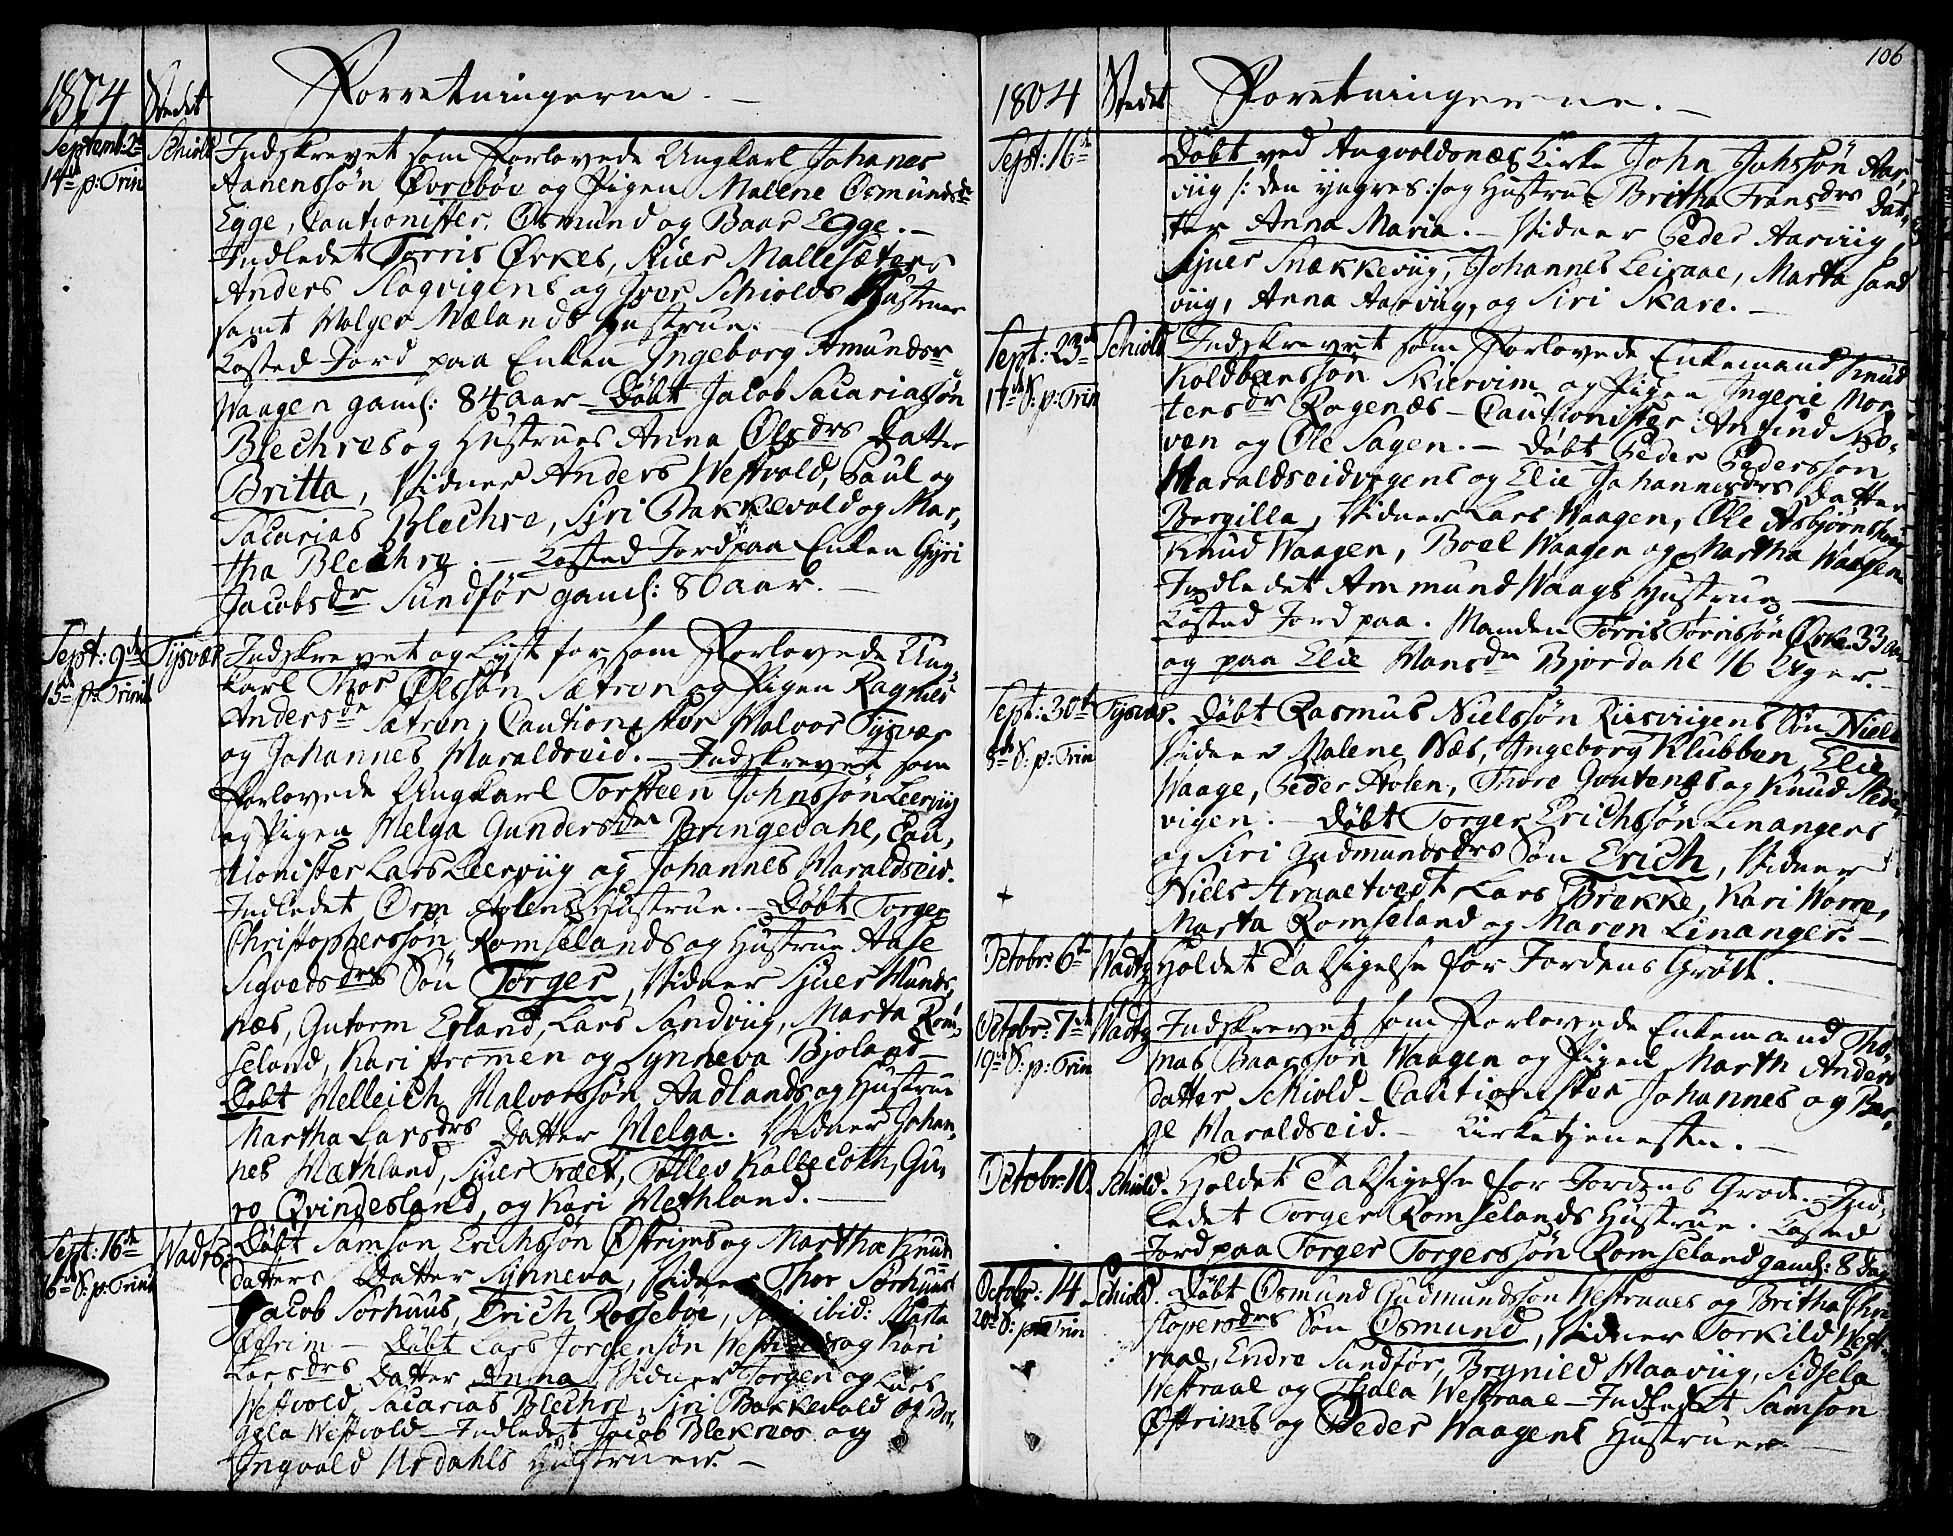 1804 Stedet Forretningerne. —
Septemb: 2den Schiold Indskrevet som Forlovede Ungkarl Johanes
14de p: Trin Aanenssön Övrebóe og Pigen Malene Osmundsdr
Egge, Cautionister, Osmund og Baar Egge. —
Indledet Torris Örkes, Siuer Mallesæters
Anders Slogvigens og Iver Schiolds Hustruer
samt Holger Mælands Hustrue. —
Kasted Jord paa Enken Ingeborg Amundsdr
Waagen gaml: 84 aar — Döbt Jacob Sacariassön
Blechres og Hustrues Anna Olsdrs Datter
Britta, Vidner Anders Westvold, Paul og
Sacarias Blechre, Siri Bakkevold og Mar,
tha Blechre. — Kasted Jord paa Enken Gyri
Jacobsdr Sundför gaml: 80 aar. —
Sept: 9de Tysvær Indskrevet og Lyst for som Forlovede Ung
15de p: Trinit karl Thor Olssön Sætren og Pigen Ragnild
Andersdr Sætren, Cautionister Halvor Tysvær
og Johannes Haraldseid. — Indskrevet som
Forlovede Ungkarl Torsteen Johnssön Leerviig
og Pigen Helga Gundersdr Bringedahl, Cau,
tionister Lars Leerviig og Johannes Haraldseid.
Indledet Orm Aolens Hustrue. — Döbt Torger
Christopherssön Romselands og Hustrue Aase
Sigvedsdrs Sön Torger, Vidner Siuer Hunds,
næs, Gutorm Erland, Lars Sandviig, Marta Rom,
seland, Kari Stromen og Synneva Bjoland —
Döbt Helleich Halvorssön Aadlands og Hustrue
Martha Larsdrs Datter Helga. Vidner Johan,
nes Hæthland, Siuer Træet, Tollev Kallekoth, Gu,
ro Qvindesland, og Kari Hethland. —
Sept: 16de Wadts: Döbt Samson Erichssön Östrims og Martha Knuds
16de S: p: Trinit datters Datter Synneva, Vidner Thor Sörhuus
Jacob Sorhuus, Erich Rosseboe, ibid: Marta
Östrim — Döbt Lars Jorgensön og Kari
Larsdrs Datter Anna Vidner Torger og Lars
Westvold, Sacarias Blechre, Siri Bakkevold og Bor,
gela Westvold — Indledet Jacob Blekraes og
Ingvald Urdahls Hustruer. —
106
1804 Stedet Foretningerne. —
Sept: 16de Döbt ved Augvoldsnæs Kirke John Johssön Aar,
viig /: den yngres :/ og Hustrue Britha Fransdrs Dat,
ter Anna Maria. — Vidner Peder Aarviig,
Siuer Snækkeviig, Johannes Leiraae, Marta Sand
viig, Anna Aarviig, og Siri Skare. —
Sept: 23de Schiold Indskrevet som Forlovede Enkemand Knud
17de S: p: Trin Koldbensson Skiervim og Pigen Ingerie Mor
tensdr Ragenæs — Cautionister Anfind Sko,
ven og Ole Sagen. — Döbt Peder Pedersson
Haraldseidvigens og Elie Johannesdrs Datter
Borgilla, Vidner Lars Waagen, Ole Asbjörnshaug
Knud Waagen, Boel Waagen og Martha Waagen
Indledet Ammund Waags Hustrue —
Kasted Jord paa. Manden Torris Torrissön Örke 33 aar
og paa Elie Hansdr Bjordahl 16 Uger. —
Sept: 30te Tysvær. Döbt Rasmus Nielssön Riisviigens Sön Niels
8de S: p: Trin Vidner Malene Næs, Ingeborg Klubben, Elie
Waage, Peder Aolen, Thore Gontenæs og Knud Slede,
vigen. — Döbt Torger Erichssön Linangers
og Siri Gudmundsdrs Sön Erich, Vidner
Niels Straaetvedt, Lars Brekke, Kari Worre,
Marta Romseland og Maren Linanger. —
Octobr: 6te Wadtz Holdet Taksigelse for Jordens Gröde.
Octobr: 7de Wadtz Indskrevet som Forlovede Enkemand Tho,
19de S: p: Trin mas Baarsson Waagen og Pigen Marth Anders
datter Schiold — Cautionister Johannes og Bør,
ge Haraldseid. — Kirketjenesten. —
Octobr: 10. Schiold. Holdet Taksigelse for Jordens Grode. Ind,
ledet Torger Romselands Hustrue. Kasted
Jord paa Torger Torgerssön Romseland gaml: 8 dage
Octobr: 14 Schiold. Döbt Osmund Gudmundsson Westraaes og Britha Chri
20de S: p: Trin stopersdrs Sön Osmund, Vidner Torkild West,
raae, Endre Sundför, Brynild Haaviig, Sidsela
Westraae og Thala Westraae — Indledet Samson
Östrims og Peder Waagens Hustruer. —